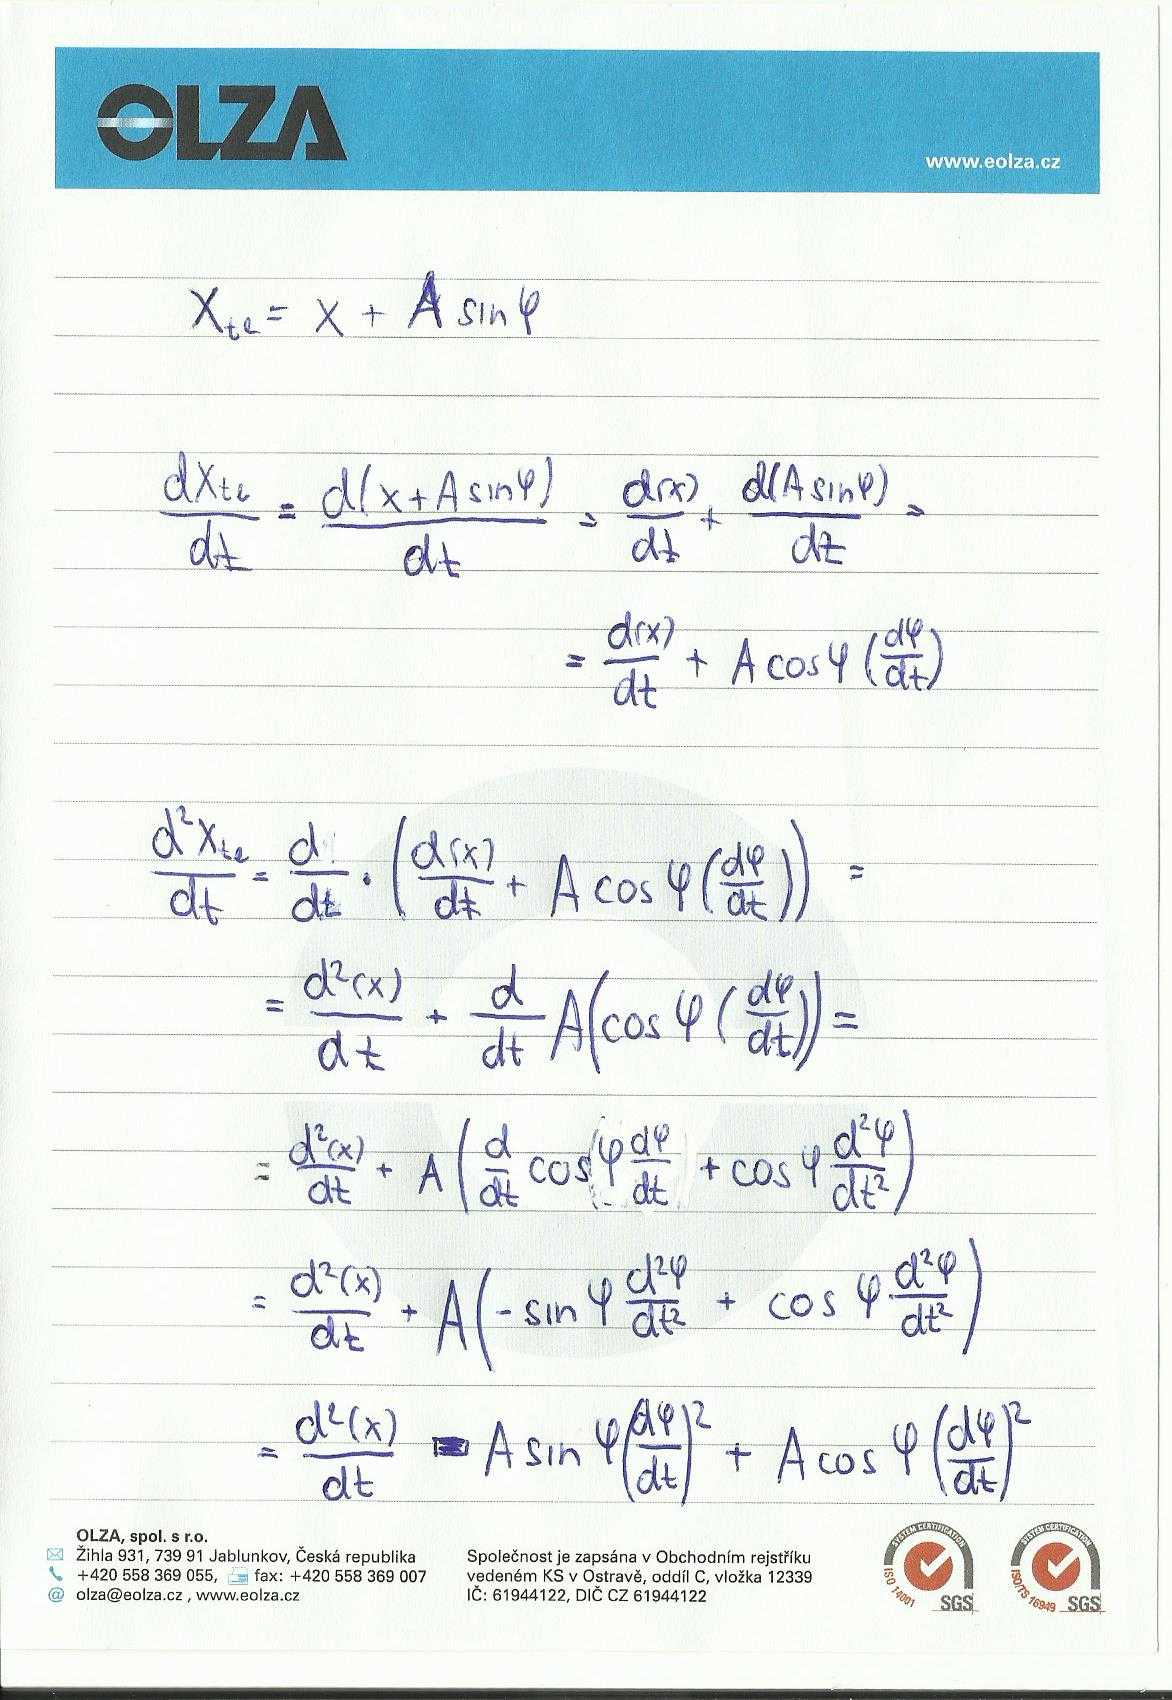 OLZA
www.eolza.cz
X_te = X + A sin φ
dX_te/dt = d(x + A sin φ)/dt = d(x)/dt + d(A sin φ)/dt =
= d(x)/dt + A cos φ (dφ/dt)
d²X_te/dt = d/dt · (d(x)/dt + A cos φ (dφ/dt)) =
= d²(x)/dt + d/dt A(cos φ (dφ/dt)) =
= d²(x)/dt + A(d/dt cos(φ dφ/dt) + cos φ d²φ/dt²)
= d²(x)/dt + A(- sin φ d²φ/dt² + cos φ d²φ/dt²)
= d²(x)/dt - A sin φ (dφ/dt)² + A cos φ (dφ/dt)²
OLZA, spol. s r.o.
Žihla 931, 739 91 Jablunkov, Česká republika
+420 558 369 055, fax: +420 558 369 007
olza@eolza.cz , www.eolza.cz
Společnost je zapsána v Obchodním rejstříku
vedeném KS v Ostravě, oddíl C, vložka 12339
IČ: 61944122, DIČ CZ 61944122
SYSTEM CERTIFICATION
ISO 14001
SGS
SYSTEM CERTIFICATION
ISO/TS 16949
SGS